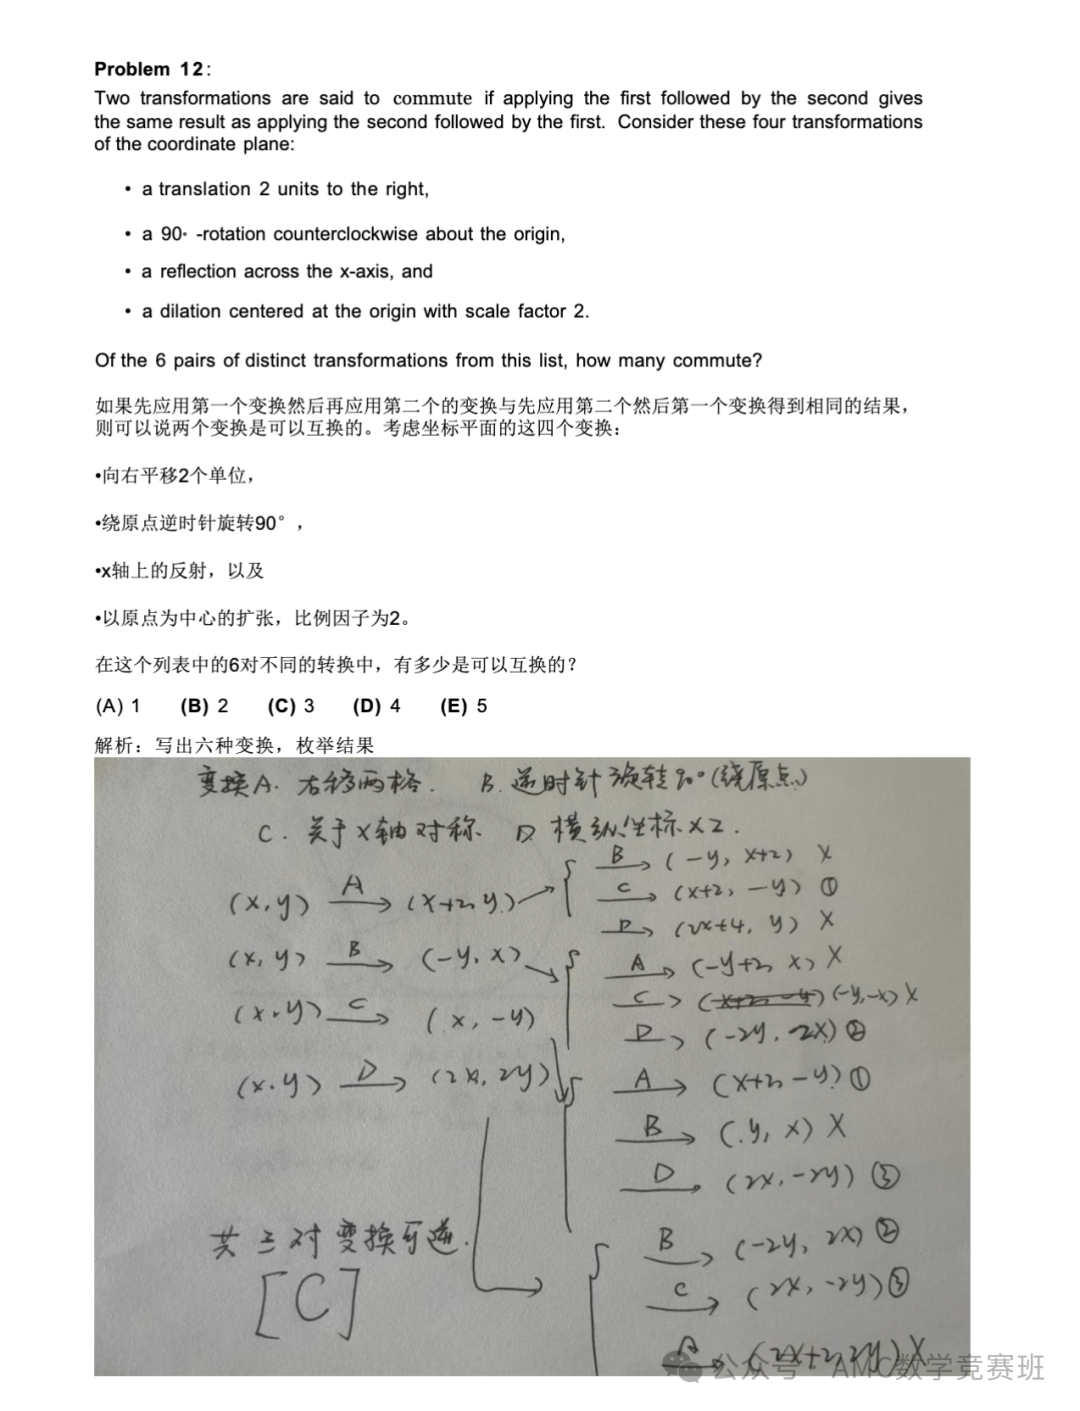 Problem 12:
Two transformations are said to commute if applying the first followed by the second gives
the same result as applying the second followed by the first. Consider these four transformations
of the coordinate plane:
• a translation 2 units to the right,
• a 90◦ -rotation counterclockwise about the origin,
• a reflection across the x-axis, and
• a dilation centered at the origin with scale factor 2.
Of the 6 pairs of distinct transformations from this list, how many commute?
如果先应用第一个变换然后再应用第二个的变换与先应用第二个然后第一个变换得到相同的结果，
则可以说两个变换是可以互换的。考虑坐标平面的这四个变换：
•向右平移2个单位，
•绕原点逆时针旋转90°，
•x轴上的反射，以及
•以原点为中心的扩张，比例因子为2。
在这个列表中的6对不同的转换中，有多少是可以互换的？
(A) 1 (B) 2 (C) 3 (D) 4 (E) 5
解析：写出六种变换，枚举结果
变换A. 右移两格. B. 逆时针旋转90°(绕原点)
C. 关于X轴对称. D 横纵坐标×2.
(x,y) A→ (x+2,y) B→ (-y, x+2) X
C→ (x+2, -y) ①
D→ (2x+4, y) X
(x,y) B→ (-y,x) A→ (-y+2, x) X
C→ (-y,-x) X
D→ (-2y, 2x) ②
(x,y) C→ (x,-y) A→ (x+2, -y) ①
B→ (y, x) X
D→ (2x, -2y) ③
(x,y) D→ (2x, 2y) B→ (-2y, 2x) ②
C→ (2x, -2y) ③
A→ (2x+2, 2y) X
共三对变换可逆.
[C]
公众号 · AMC数学竞赛班